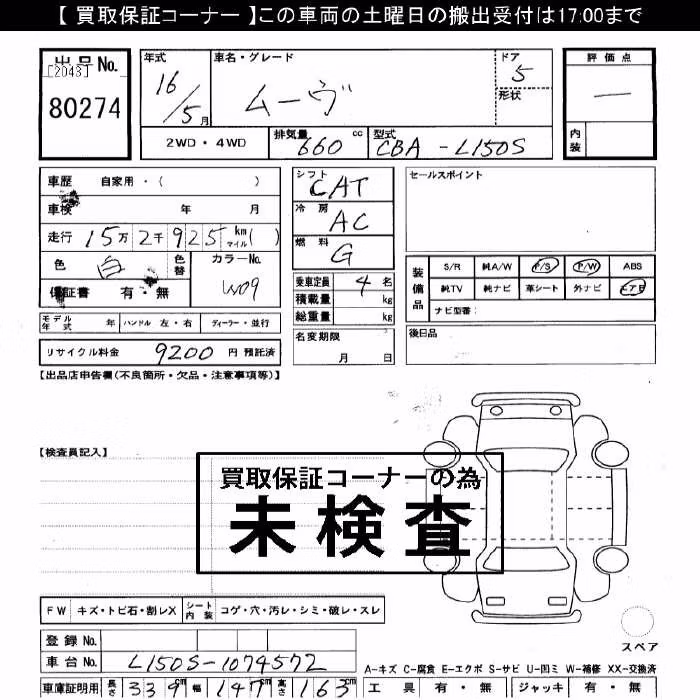 【 買取保証コーナー 】この車両の土曜日の搬出受付は17:00まで
出品 No. [2043] 80274
年式 16/5月
車名・グレード ムーヴ
ドア 5
形状
評価点 —
内装
2WD・4WD 排気量 660 cc 型式 CBA-L150S
車歴 自家用・( )
車検 年 月
走行 15万2千925 km マイル ( )
色 白 色替 カラーNo. W09
保証書 有・無
モデル年式 年 ハンドル 左・右 ディーラー・並行
リサイクル料金 9200 円 預託済
シフト CAT
冷房 AC
燃料 G
乗車定員 4 名
積載量 kg
総重量 kg
名変期限 月 日
セールスポイント
装備品 S/R 純A/W P/S P/W ABS
純TV 純ナビ 革シート 外ナビ エアB
ナビ型番:
後日品
【出品店申告欄(不良箇所・欠品・注意事項等)】
【検査員記入】
買取保証コーナーの為
未検査
FW キズ・トビ石・割レX シート内装 コゲ・穴・汚レ・シミ・破レ・スレ
登録 No.
車台 No. L150S-1074572
車庫証明用 長さ 339cm 幅 147cm 高さ 163cm
スペア
A-キズ C-腐食 E-エクボ S-サビ U-凹ミ W-補修 XX-交換済
工具 有・無 ジャッキ 有・無